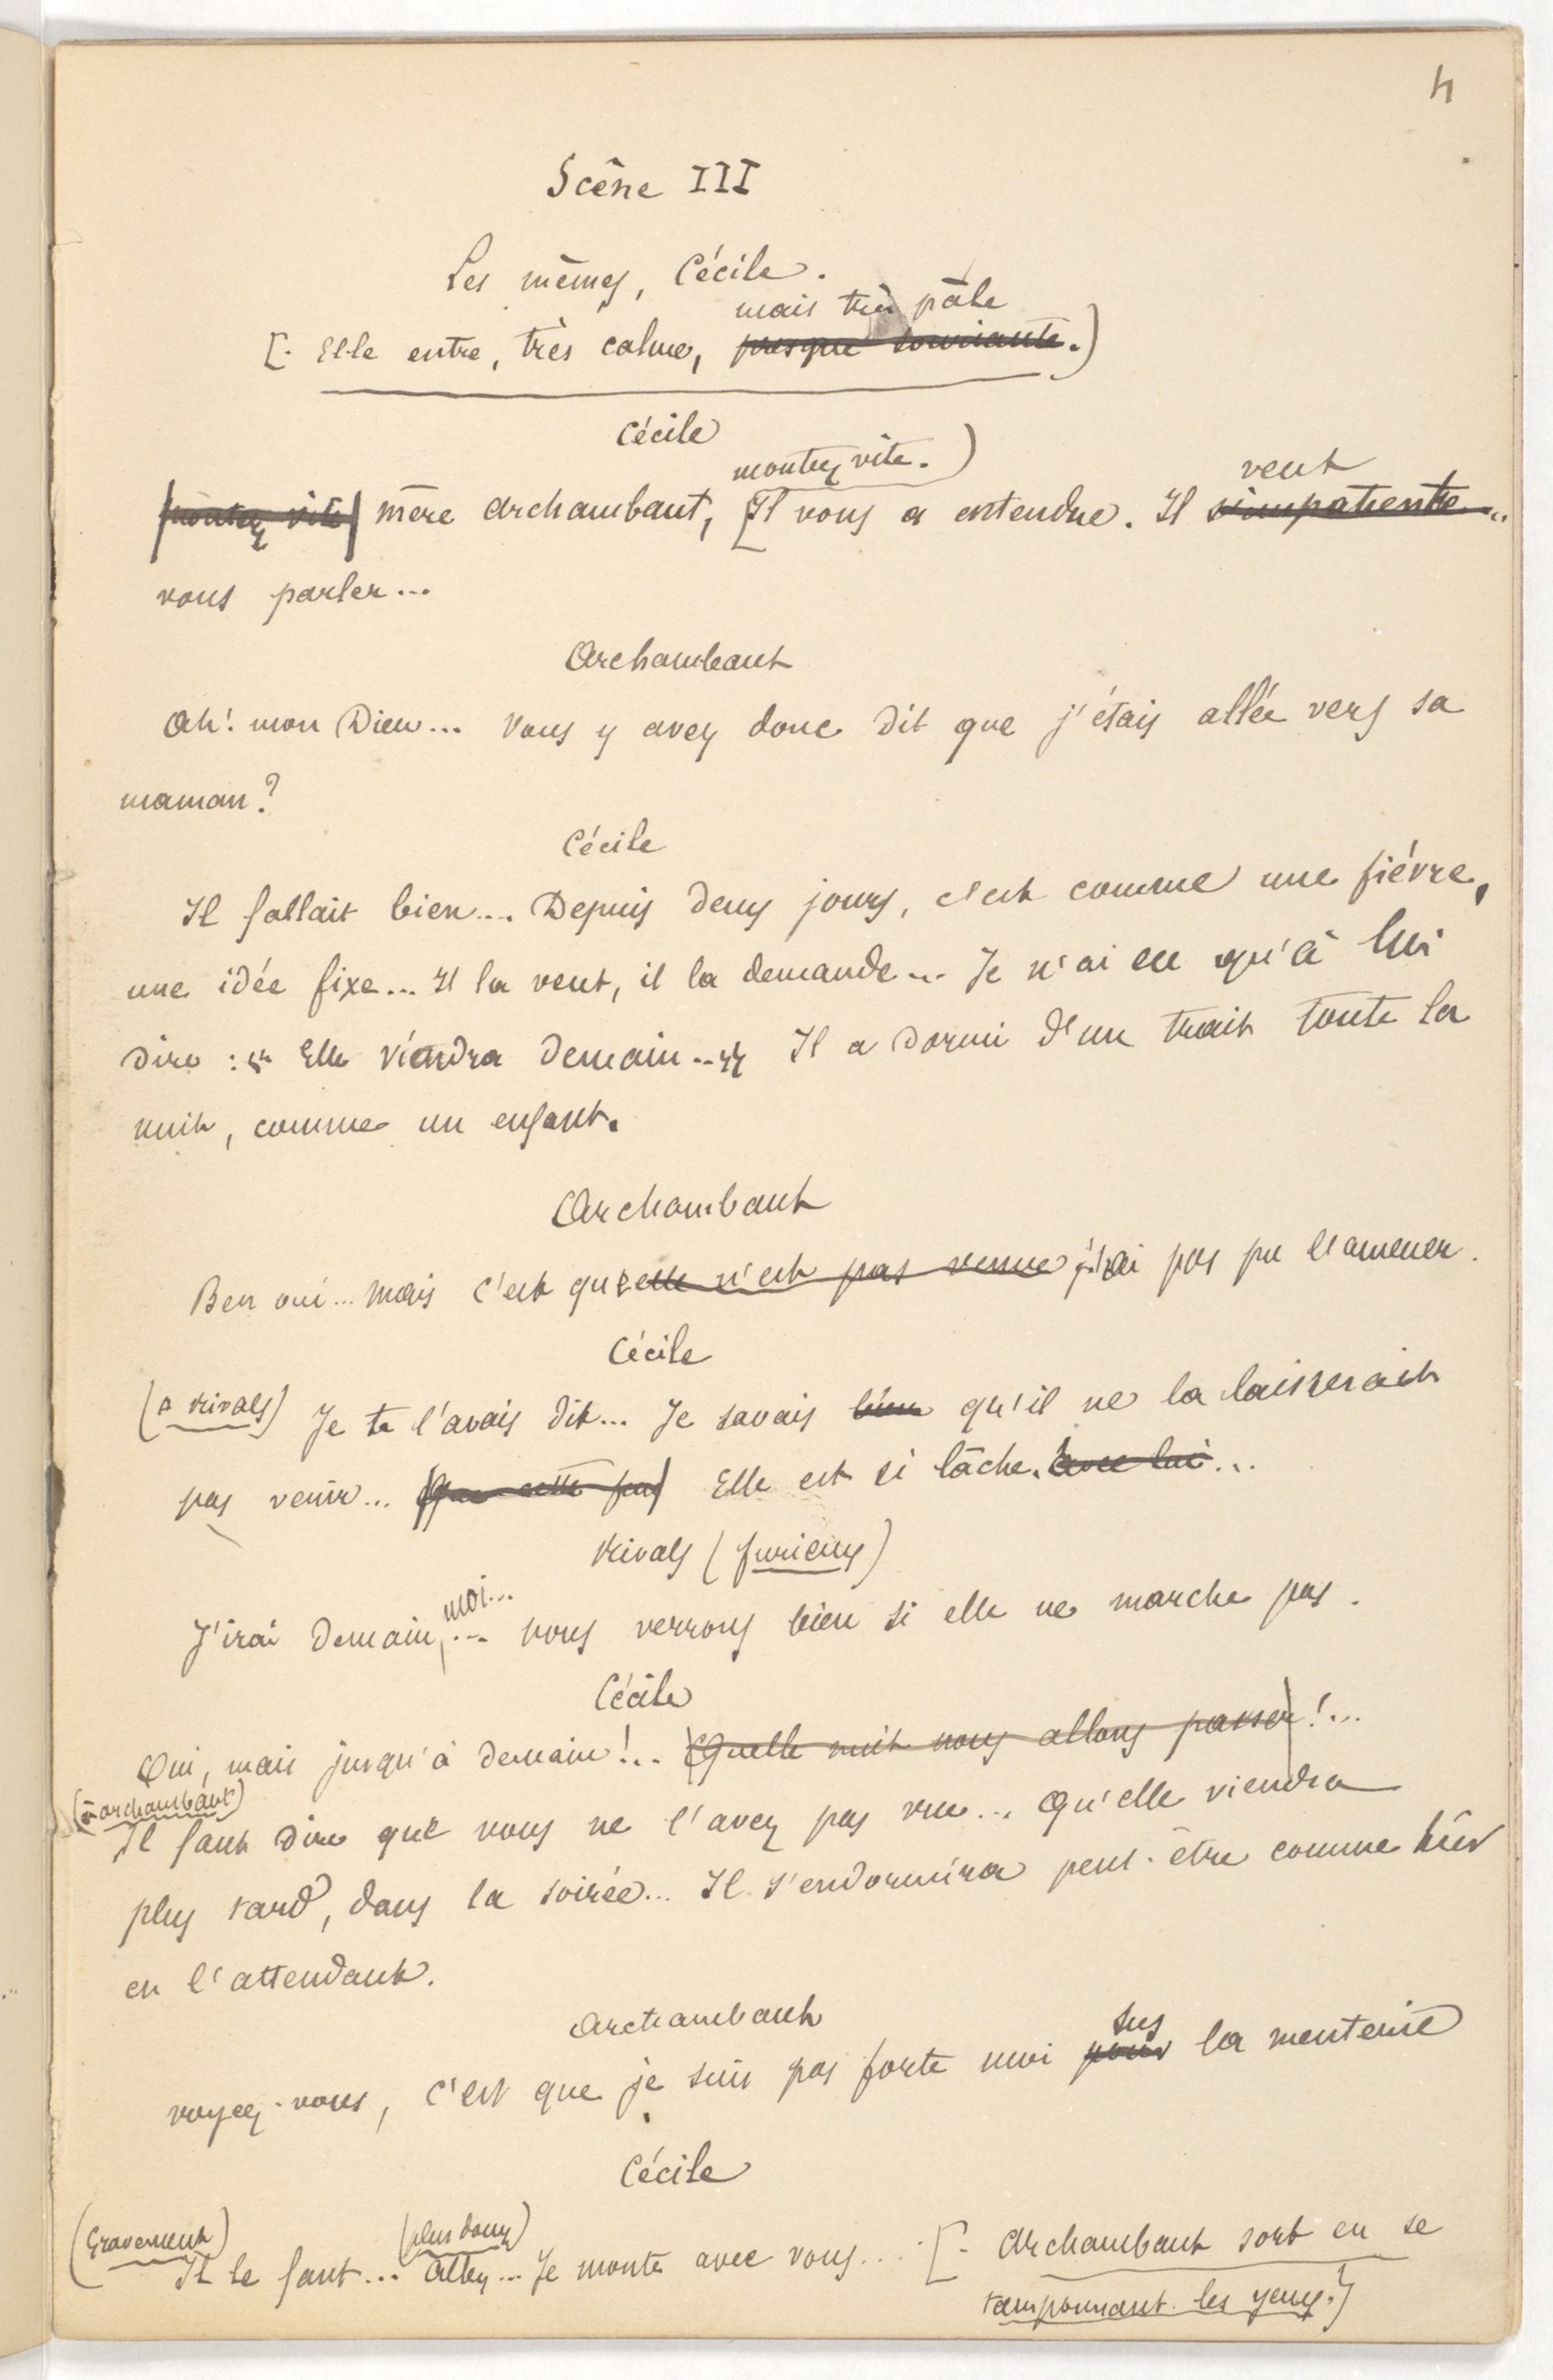 4
Scène III
Les mêmes, Cécile.
mais très pâle
[. Elle entre, très calme, presque souriante.)
Cécile
montez vite.)
veut
montez vite mère Archambaut, [Il vous a entendue. Il s'impatiente...
vous parler...
Archambaut
Ah! mon Dieu... Vous y avez donc dit que j'étais allée vers sa
maman?
Cécile
Il fallait bien... Depuis deux jours, c'est comme une fièvre,
une idée fixe... Il la veut, il la demande... Je n'ai eu qu'à lui
dire : « Elle viendra demain..» Il a dormi d'un trait toute la
nuit, comme un enfant.
Archambaut
Ben oui... mais c'est que elle n'est pas venue j'ai pas pu l'amener.
Cécile
(à Rivals) Je te l'avais dit... Je savais bien qu'il ne la laisserait
pas venir... Elle est si lâche. avec lui...
Rivals (furieux)
moi...
J'irai demain,... nous verrons bien si elle ne marche pas.
Cécile
Oui, mais jusqu'à demain!.. (Quelle nuit nous allons passer)!...
(à archambaut)
Il faut dire que vous ne l'avez pas vue... Qu'elle viendra
plus tard, dans la soirée... Il s'endormira peut-être comme hier
en l'attendant.
Archambaut
sus
voyez-vous, c'est que je suis pas forte moi pour la menterie
Cécile
(Gravement) (plus doux)
Il le faut... allez... Je monte avec vous... [. Archambaut sort en se
tamponnant les yeux.]